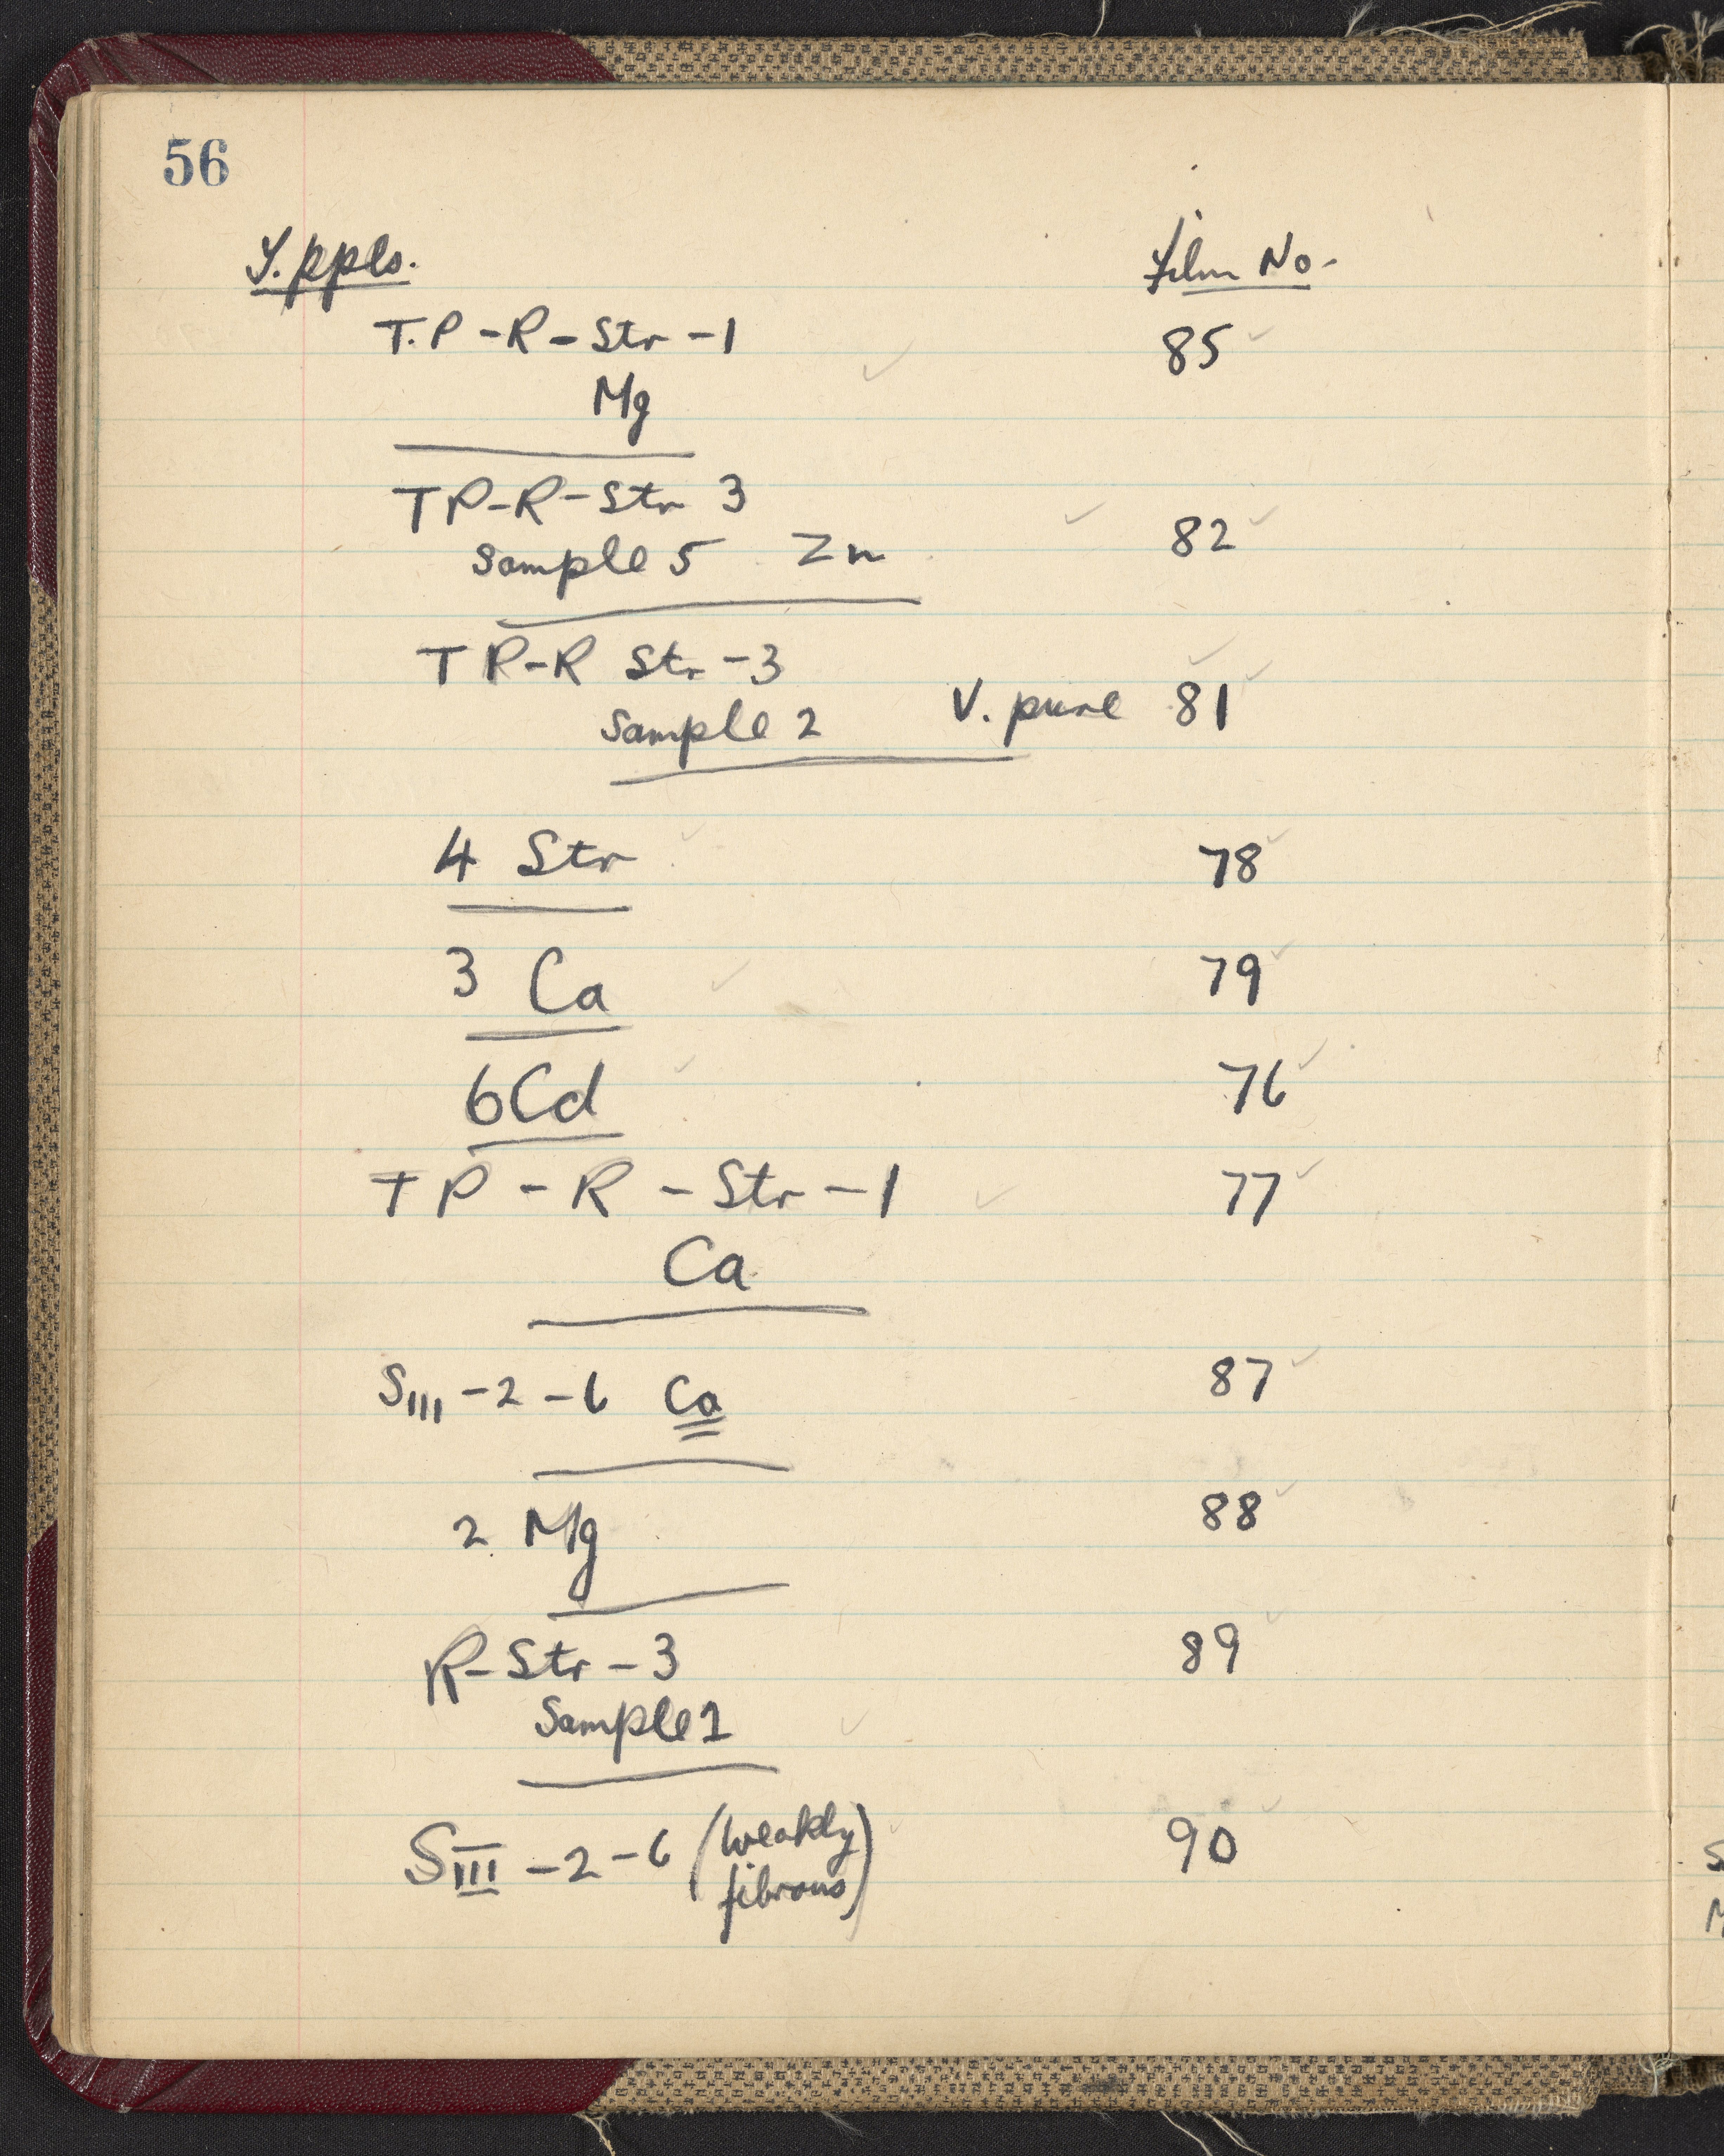 56
Y. ppls. Film No.
T.P - R - Str - 1 85
Mg
TP-R-Str 3
Sample 5 Zn 82
TP-R Str - 3
Sample 2 V. pure 81
4 Str 78
3 Ca 79
6 Cd 76
TP - R - Str - 1 77
Ca
SIII - 2 - 6 Ca 87
2 Mg 88
R-Str-3 89
Sample 1
SIII - 2 - 6 (weakly 90
fibrous)